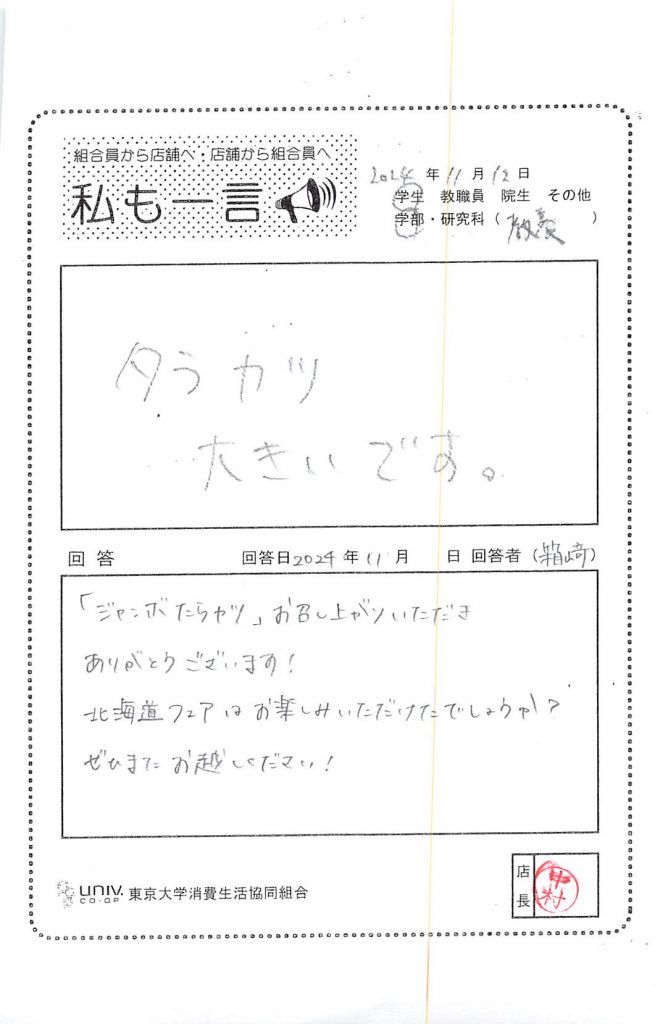 組合員から店舗へ・店舗から組合員へ
私も一言
2024年11月12日
学生 教職員 院生 その他
学部・研究科（教養）
タラカツ
大きいです。
回答 回答日2024年11月 日 回答者（箱崎）
「ジャンボたらカツ」お召し上がりいただき
ありがとうございます！
北海道フェアはお楽しみいただけたでしょうか？
ぜひまたお越しください！
UNIV. CO-OP 東京大学消費生活協同組合
店長 中村